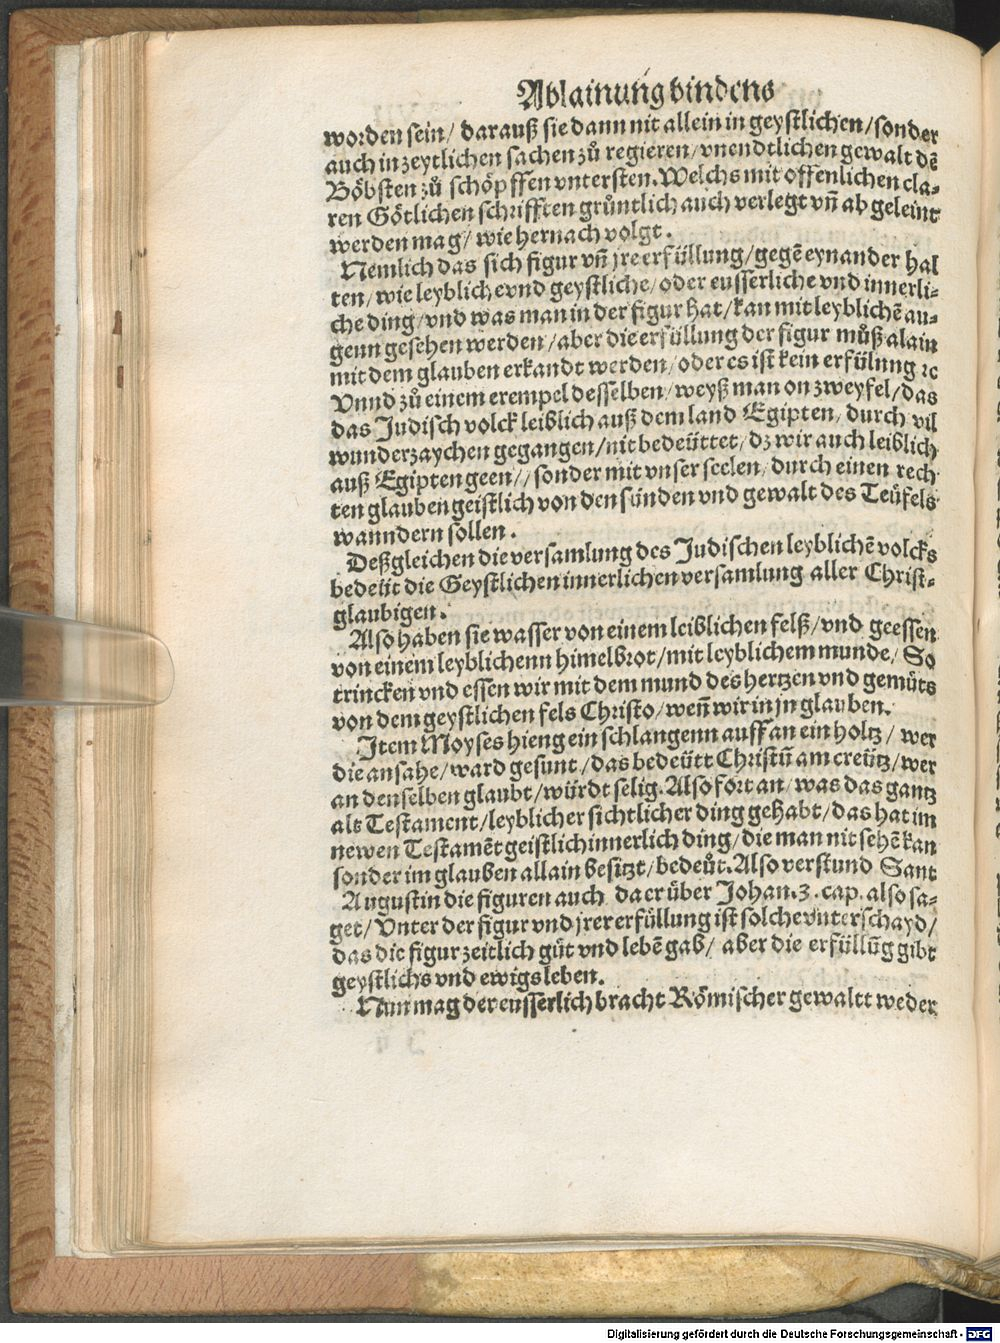 Ablainung bindens
worden sein/ darauß sie dann nit allein in geystlichen/sonder
auch in zeytlichen sachen zů regieren/vnendtlichen gewalt dē
Böbsten zů schöpffen vntersten. Welchs mit offenlichen cla⸗
ren Götlichen schrifften grůntlich auch verlegt vñ abgeleint
werden mag/ wie hernach volgt.
Nemlich das sich figur vñ jre erfüllung/gegē eynander hal
ten/ wie leyblich evnd geystliche/ oder eusserliche vnd innerli⸗
che ding/ vnd was man in der figur hat/kan mit leyblichē au⸗
genn gesehen werden/ aber die erfüllung der figur můß alain
mit dem glauben erkandt werden/ oder es ist kein erfülung ꝛc
Vnnd zů einem exempel desselben/ weyß man on zweyfel/das
das Judisch volck leiblich auß dem land Egipten/ durch vil
wunderzaychen gegangen/nit bedeüttet/ dz wir auch leiblich
auß Egipten geen// sonder mit vnser seelen/ durch einen rech
ten glauben geistlich von den sünden vnd gewalt des Teüfels
wanndern sollen.
Deßgleichen die versamlung des Judischen leyblichē volcks
bedeüt die Geystlichen innerlichen versamlung aller Christ⸗
glaubigen.
Also haben sie wasser von einem leiblichen felß/vnd geessen
von einem leyblichenn himelbrot/mit leyblichem munde/ So
trincken vnd essen wir mit dem mund des hertzen vnd gemüts
von dem geystlichen fels Christo/ weñ wir in jn glauben.
Item Moyses hieng ein schlangenn auff an ein holtz/ wer
die ansahe/ward gesunt/das bedeütt Christū am creütz/wer
an denselben glaubt/würdt selig. Also fort an/ was das gantz
alt Testament/leyblicher sichtlicher ding gehabt/das hat im
newen Testamēt geistlich innerlich ding/die man nit sehē kan
sonder im glauben allain besitzt/bedeůt. Also verstund Sant
Augustin die figuren auch dacr über Johan. 3. cap. also sa⸗
get/ Vnter der figur vnd jrer erfüllung ist solche vnterschayd/
das die figur zeitlich güt vnd lebē gab/ aber die erfüllūg gibt
geystlichs vnd ewigs leben.
Nun mag der eusserlich bracht Römischer gewaltt weder
Digitalisierung gefördert durch die Deutsche Forschungsgemeinschaft - DFG